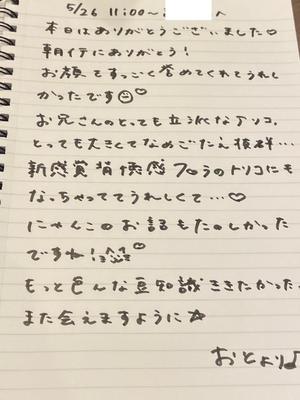 5/26 11:00〜 へ
本日はありがとうございました♡
朝イチにありがとう!
お顔てすっごく誉めてくれてうれし
かったです☺♡
お兄さんのとっても立派なアソコ、
とっても大きくてなめごたえ抜群…
新感覚背徳感フロラのトリコにも
なっちゃっててうれしくて…♡
にゃんこのお話もたのしかった
ですね!♡
もっと色んな豆知識ききたかった
また会えますように☆
おとより♪